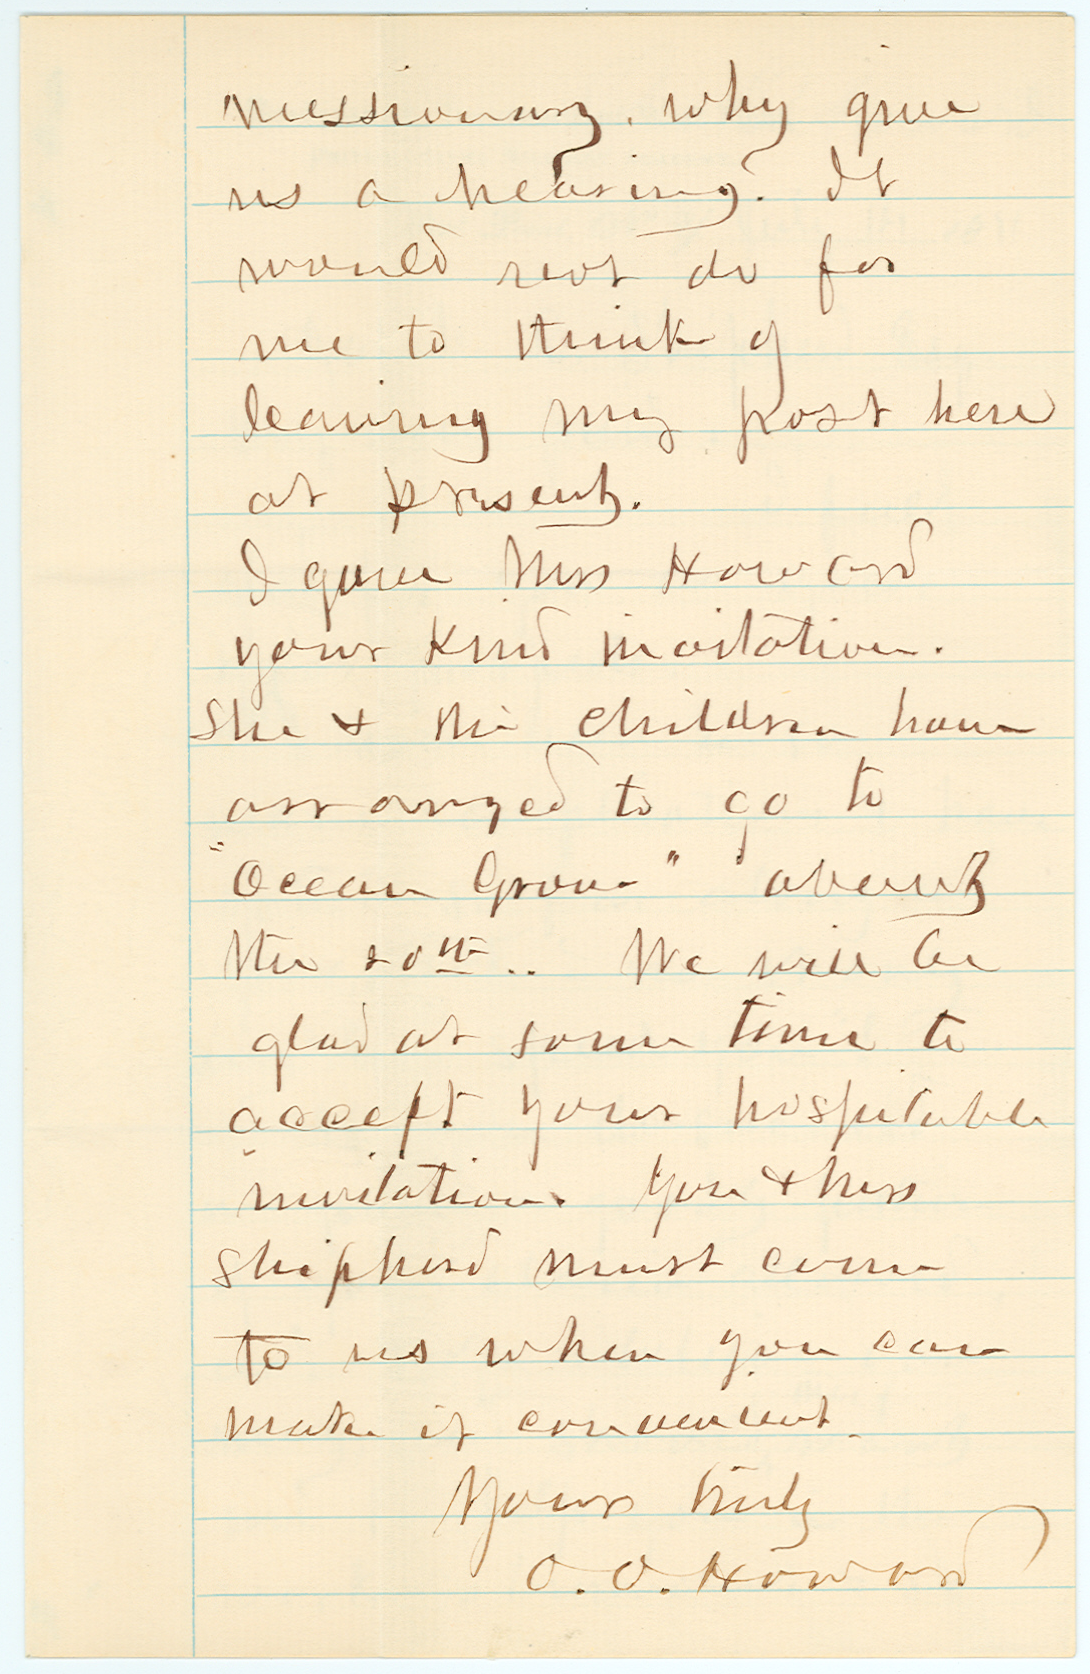 missionary, why give
us a hearing. It
would not do for
me to think of
leaving my post here
at present.
I gave Mrs Howard
your kind invitation.
She & the children have
arranged to go to
"Ocean Grove" about
the 20th.. We will be
glad at some time to
accept your hospitable
invitation. You & Mrs
Shepherd must come
to us when you can
make it convenient.
Yours truly
O. O. Howard